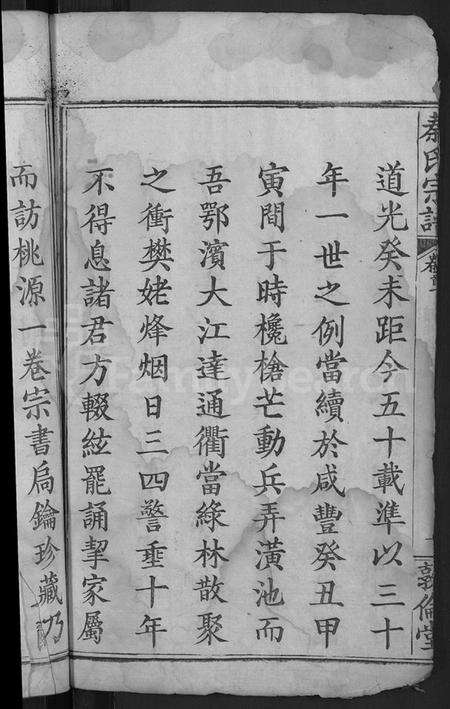 秦氏宗譜
卷首
敦倫堂
道光癸未距今五十載準以三十
年一世之例當續於咸豐癸丑甲
寅間于時欃槍芒動兵弄潢池而
吾鄂濱大江達通衢當綠林散聚
之衝樊姥烽烟日三四警垂十年
不得息諸君方輟絃罷誦挈家屬
而訪桃源一卷宗書扃鑰珍藏乃